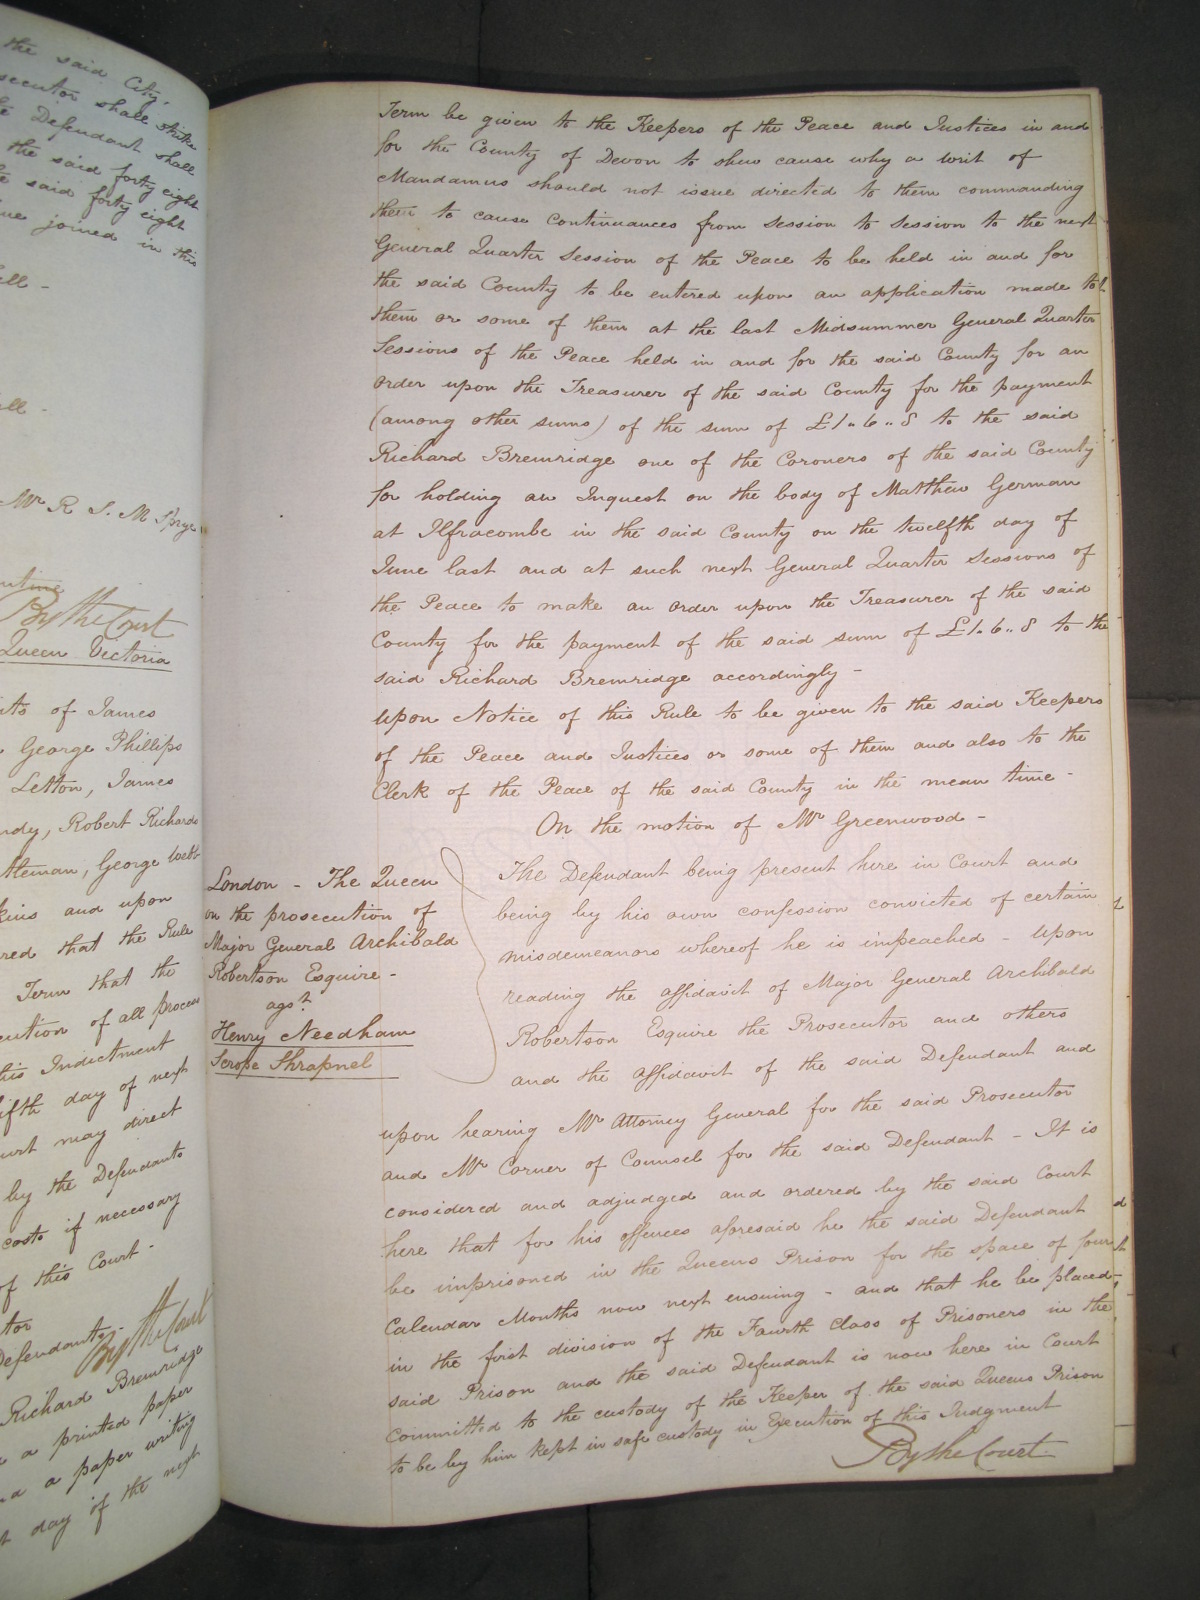 the said City,
secutor shall strike
Defendant shall
the said forty eight
said forty eight
joined in this
Mr R S. M
By the Court
Queen Victoria
of James
George Phillips
Letton, James
Robert Richards
George Webb
and upon
that the Rule
Term that the
of all process
this Indictment
day of next
may direct
by the Defendants
costs if necessary
of this Court -
Defendants -
By the Court
Richard Bremridge
a printed paper
a paper writing
day of the next
Term be given to the Keepers of the Peace and Justices in and
for the County of Devon to shew cause why a writ of
Mandamus should not issue directed to them commanding
them to cause Continuances from Session to Session to the next
General Quarter Session of the Peace to be held in and for
the said County to be entered upon an application made to
them or some of them at the last Midsummer General Quarter
Sessions of the Peace held in and for the said County for an
order upon the Treasurer of the said County for the payment
(among other sums) of the sum of £1.. 6.. 8 to the said
Richard Bremridge one of the Coroners of the said County
for holding an Inquest on the body of Matthew German
at Ilfracombe in the said County on the twelfth day of
June last and at such next General Quarter Sessions of
the Peace to make an order upon the Treasurer of the said
County for the payment of the said sum of £1. 6.. 8 to the
said Richard Bremridge accordingly -
upon Notice of this Rule to be given to the said Keepers
of the Peace and Justices or some of them and also to the
Clerk of the Peace of the said County in the mean time -
On the motion of Mr Greenwood -
London - The Queen
on the prosecution of
Major General Archibald
Robertson Esquire -
agst
Henry Needham
Scrope Shrapnel
The Defendant being present here in Court and
being by his own confession convicted of certain
misdemeanors whereof he is impeached - upon
reading the affidavit of Major General Archibald
Robertson Esquire the Prosecutor and others
and the affidavit of the said Defendant and
upon hearing Mr Attorney General for the said Prosecutor
and Mr Corner of Counsel for the said Defendant - It is
considered and adjudged and ordered by the said Court
here that for his offences aforesaid he the said Defendant
be imprisoned in the Queens Prison for the space of four
Calendar Months now next ensuing - and that he be placed
in the first division of the Fourth Class of Prisoners in the
said Prison and the said Defendant is now here in Court
committed to the custody of the Keeper of the said Queens Prison
to be by him kept in safe custody in Execution of this Judgment
By the Court